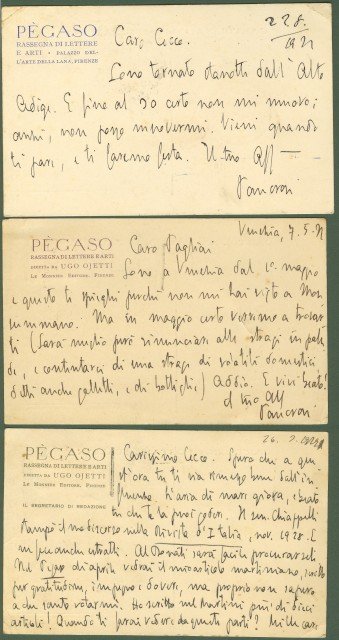 PÈGASO
RASSEGNA DI LETTERE
E ARTI · PALAZZO DEL-
L'ARTE DELLA LANA, FIRENZE
Caro Cecco.
Sono tornato stanotte dall'Alto
Adige. E fino al 30 certo non mi muovo;
anzi, non posso muovermi. Vieni quando
ti pare, e ti faremo festa. Il tuo aff
Pancrazi
PÈGASO
RASSEGNA DI LETTERE E ARTI
DIRETTA DA UGO OJETTI
LE MONNIER EDITORE, FIRENZE
Venezia, 7.5.
Caro Pagliai
Sono a Venezia dal 1º maggio
e questo ti spieghi perchè non mi hai visto a Mon
summano. Ma in maggio certo verremo a trovar
ti (Sarà meglio però rinunciare alle stragi in
e contentarci di una strage di volatili domestici
detti anche galletti, e di bottiglie.) Addio. E vivi beato!
Pancrazi
PÈGASO
RASSEGNA DI LETTERE E ARTI
DIRETTA DA UGO OJETTI
LE MONNIER EDITORE, FIRENZE
IL SEGRETARIO DI REDAZIONE
Carissimo Cecco. Spero che a
st'ora tu ti sia rimesso bene dall'in
fluenza. L'aria di mare giova, e beato
tu che te la puoi godere. Il sen. Chiappelli
stampò il suo discorso sulla Rivista d'Italia, nov. 1928. E
estratti. Al Donati sarà facile procurarseli
Nel Pègaso di aprile vedrai il mio articolo martiniano, scritto
per gratitudine, impegno e dovere, ma proprio non sapevo
Ho scritto sul Martini più di dieci
articoli! Quando ti farai vedere da queste parti? Mille cari